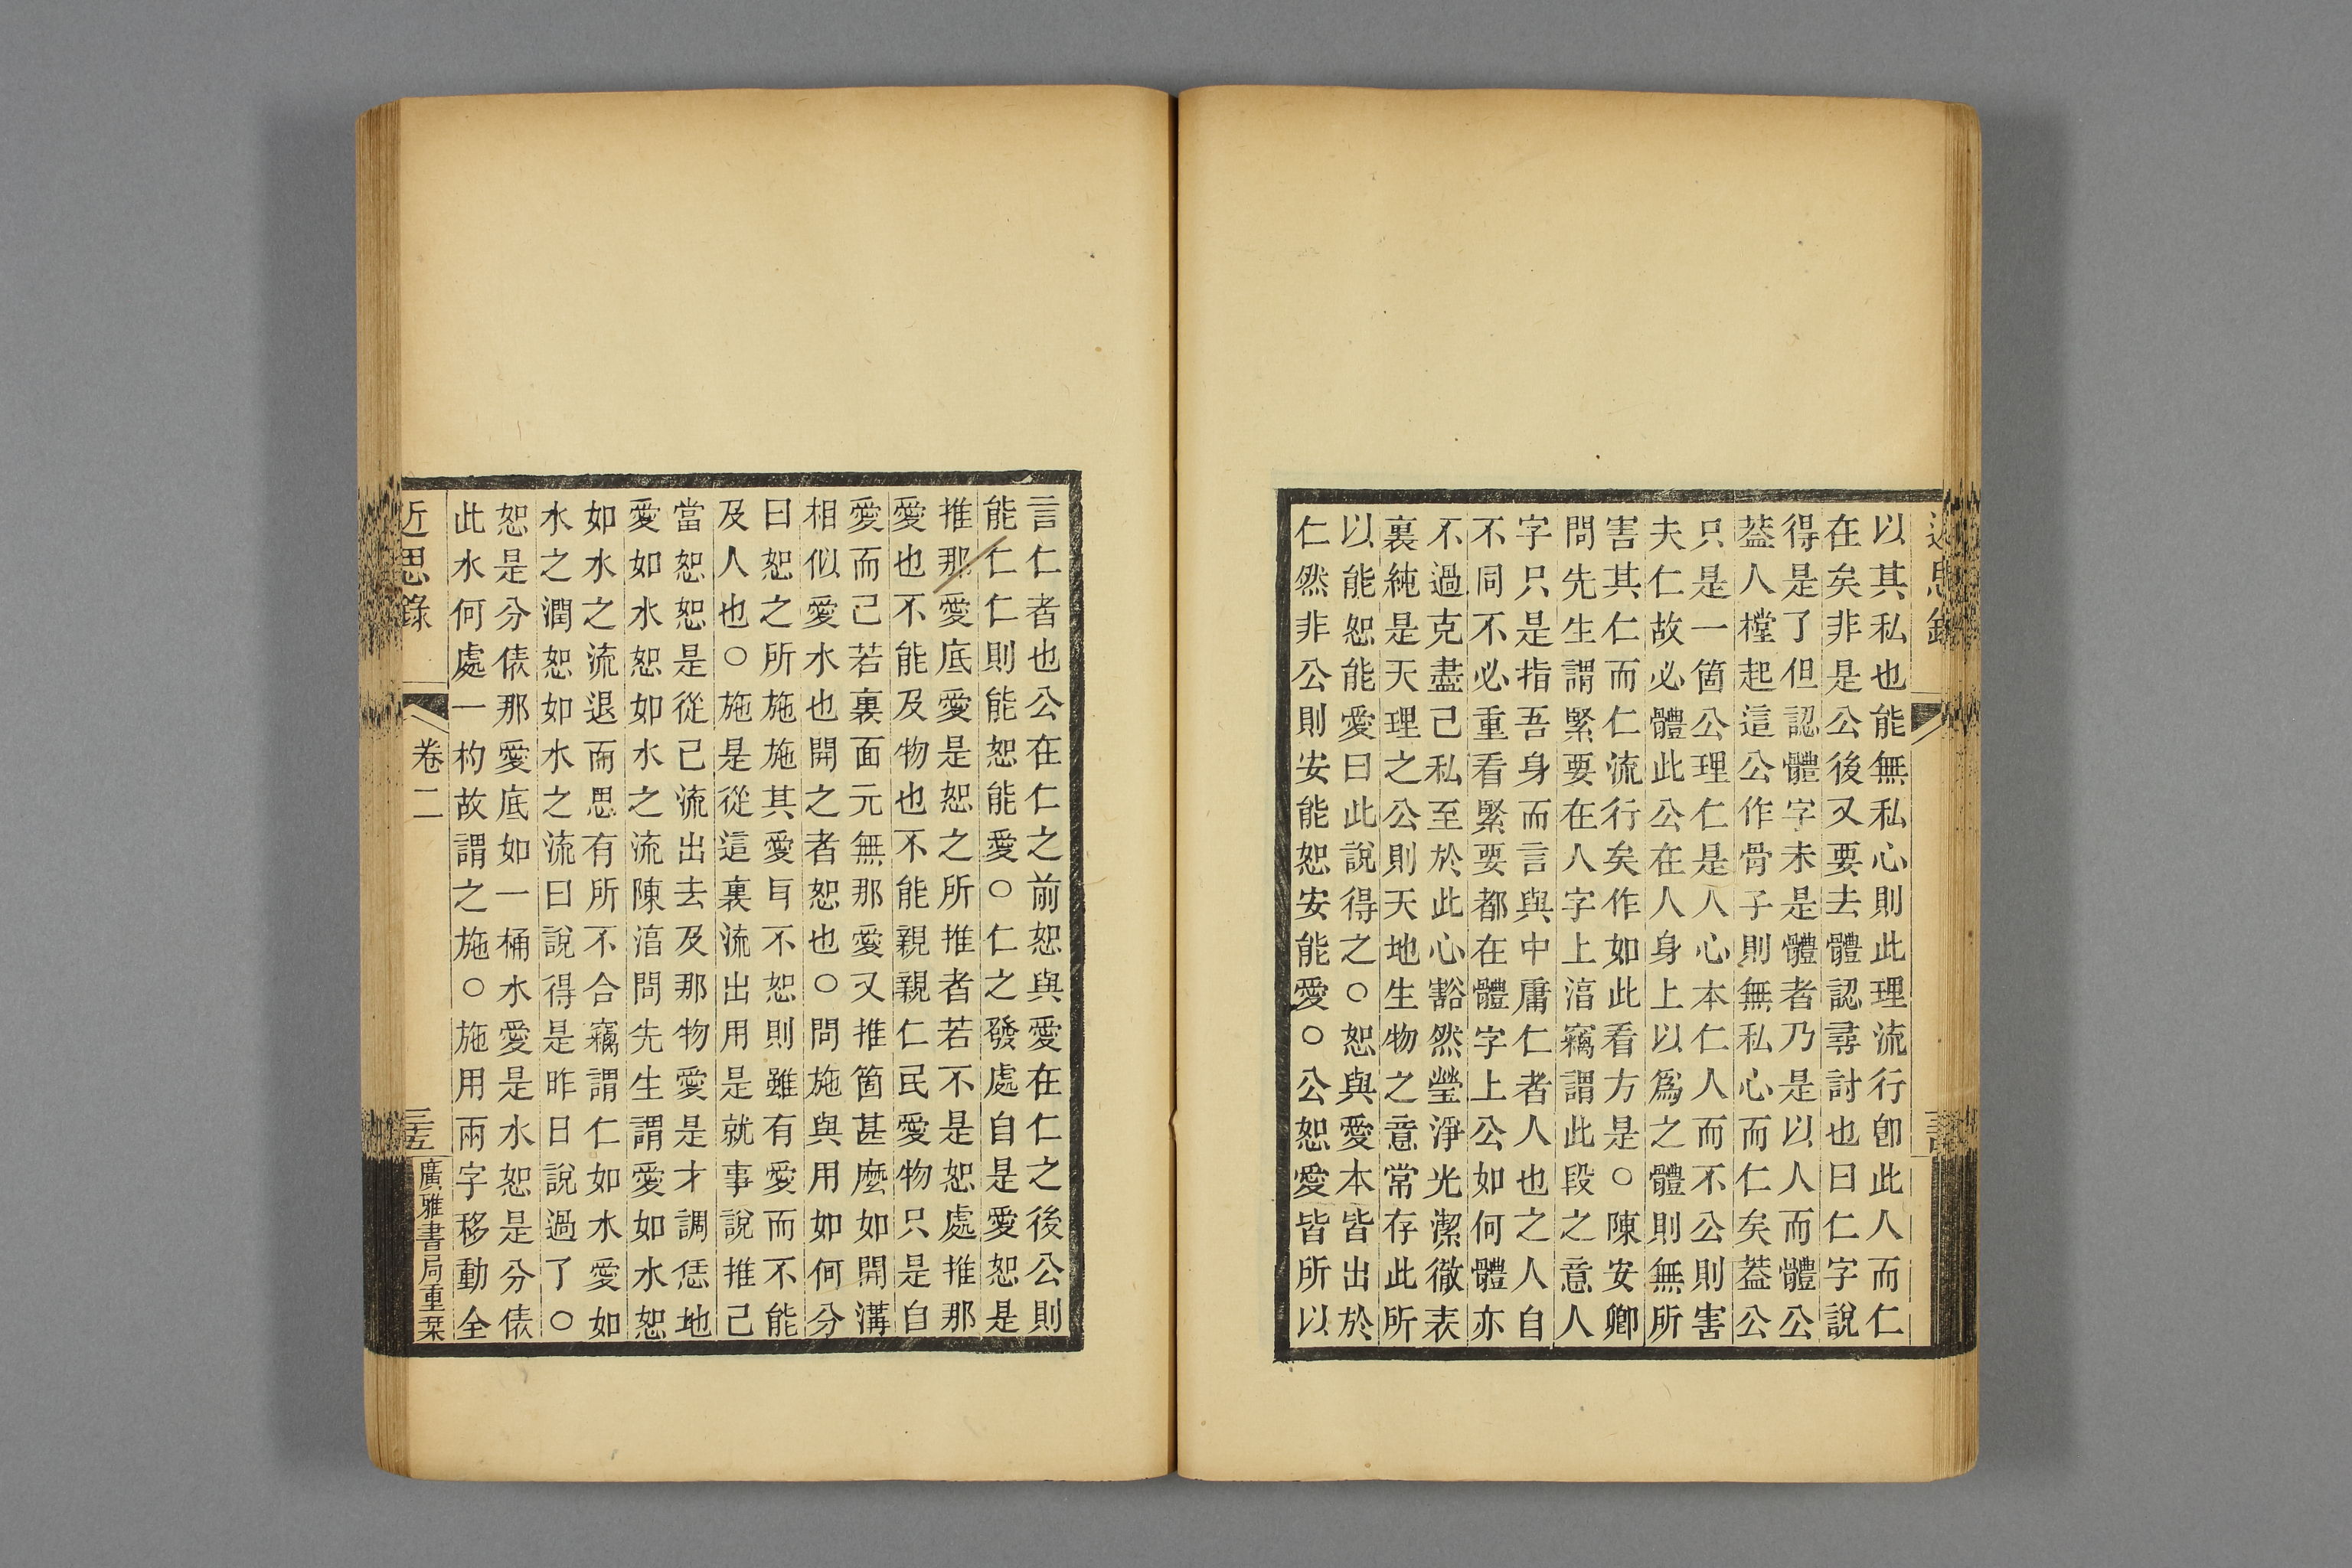 以其私也能無私心則此理流行卽此人而仁
在矣非是公後又要去體認尋討也曰仁字說
得是了但認體字未是體者乃是以人而體公
葢人樘起這公作骨子則無私心而仁矣葢公
只是一箇公理仁是人心本仁人而不公則害
夫仁故必體此公在人身上以爲之體則無所
害其仁而仁流行矣作如此看方是○陳安卿
問先生謂緊要在人字上湻竊謂此段之意人
字只是指吾身而言與中庸仁者人也之人自
不同不必重看緊要都在體字上公如何體亦
不過克盡己私至於此心豁然瑩淨光潔徹表
裏純是天理之公則天地生物之意常存此所
以能恕能愛曰此說得之○恕與愛本皆出於
仁然非公則安能恕安能愛○公恕愛皆所以
言仁者也公在仁之前恕與愛在仁之後公則
能仁仁則能恕能愛○仁之發處自是愛恕是
推那愛底愛是恕之所推者若不是恕處推那
愛也不能及物也不能親親仁民愛物只是自
愛而己若裏面元無那愛又推箇甚麼如開溝
相似愛水也開之者恕也○問施與用如何分
曰恕之所施施其愛耳不恕則雖有愛而不能
及人也○施是從這裏流出用是就事說推己
當恕恕是從己流出去及那物愛是才調恁地
愛如水恕如水之流陳湻問先生謂愛如水恕
如水之流退而思有所不合竊謂仁如水愛如
水之潤恕如水之流曰說得是昨日說過了○
恕是分俵那愛底如一桶水愛是水恕是分俵
此水何處一杓故謂之施○施用兩字移動全
近思錄 卷二 三五 廣雅書局重栞